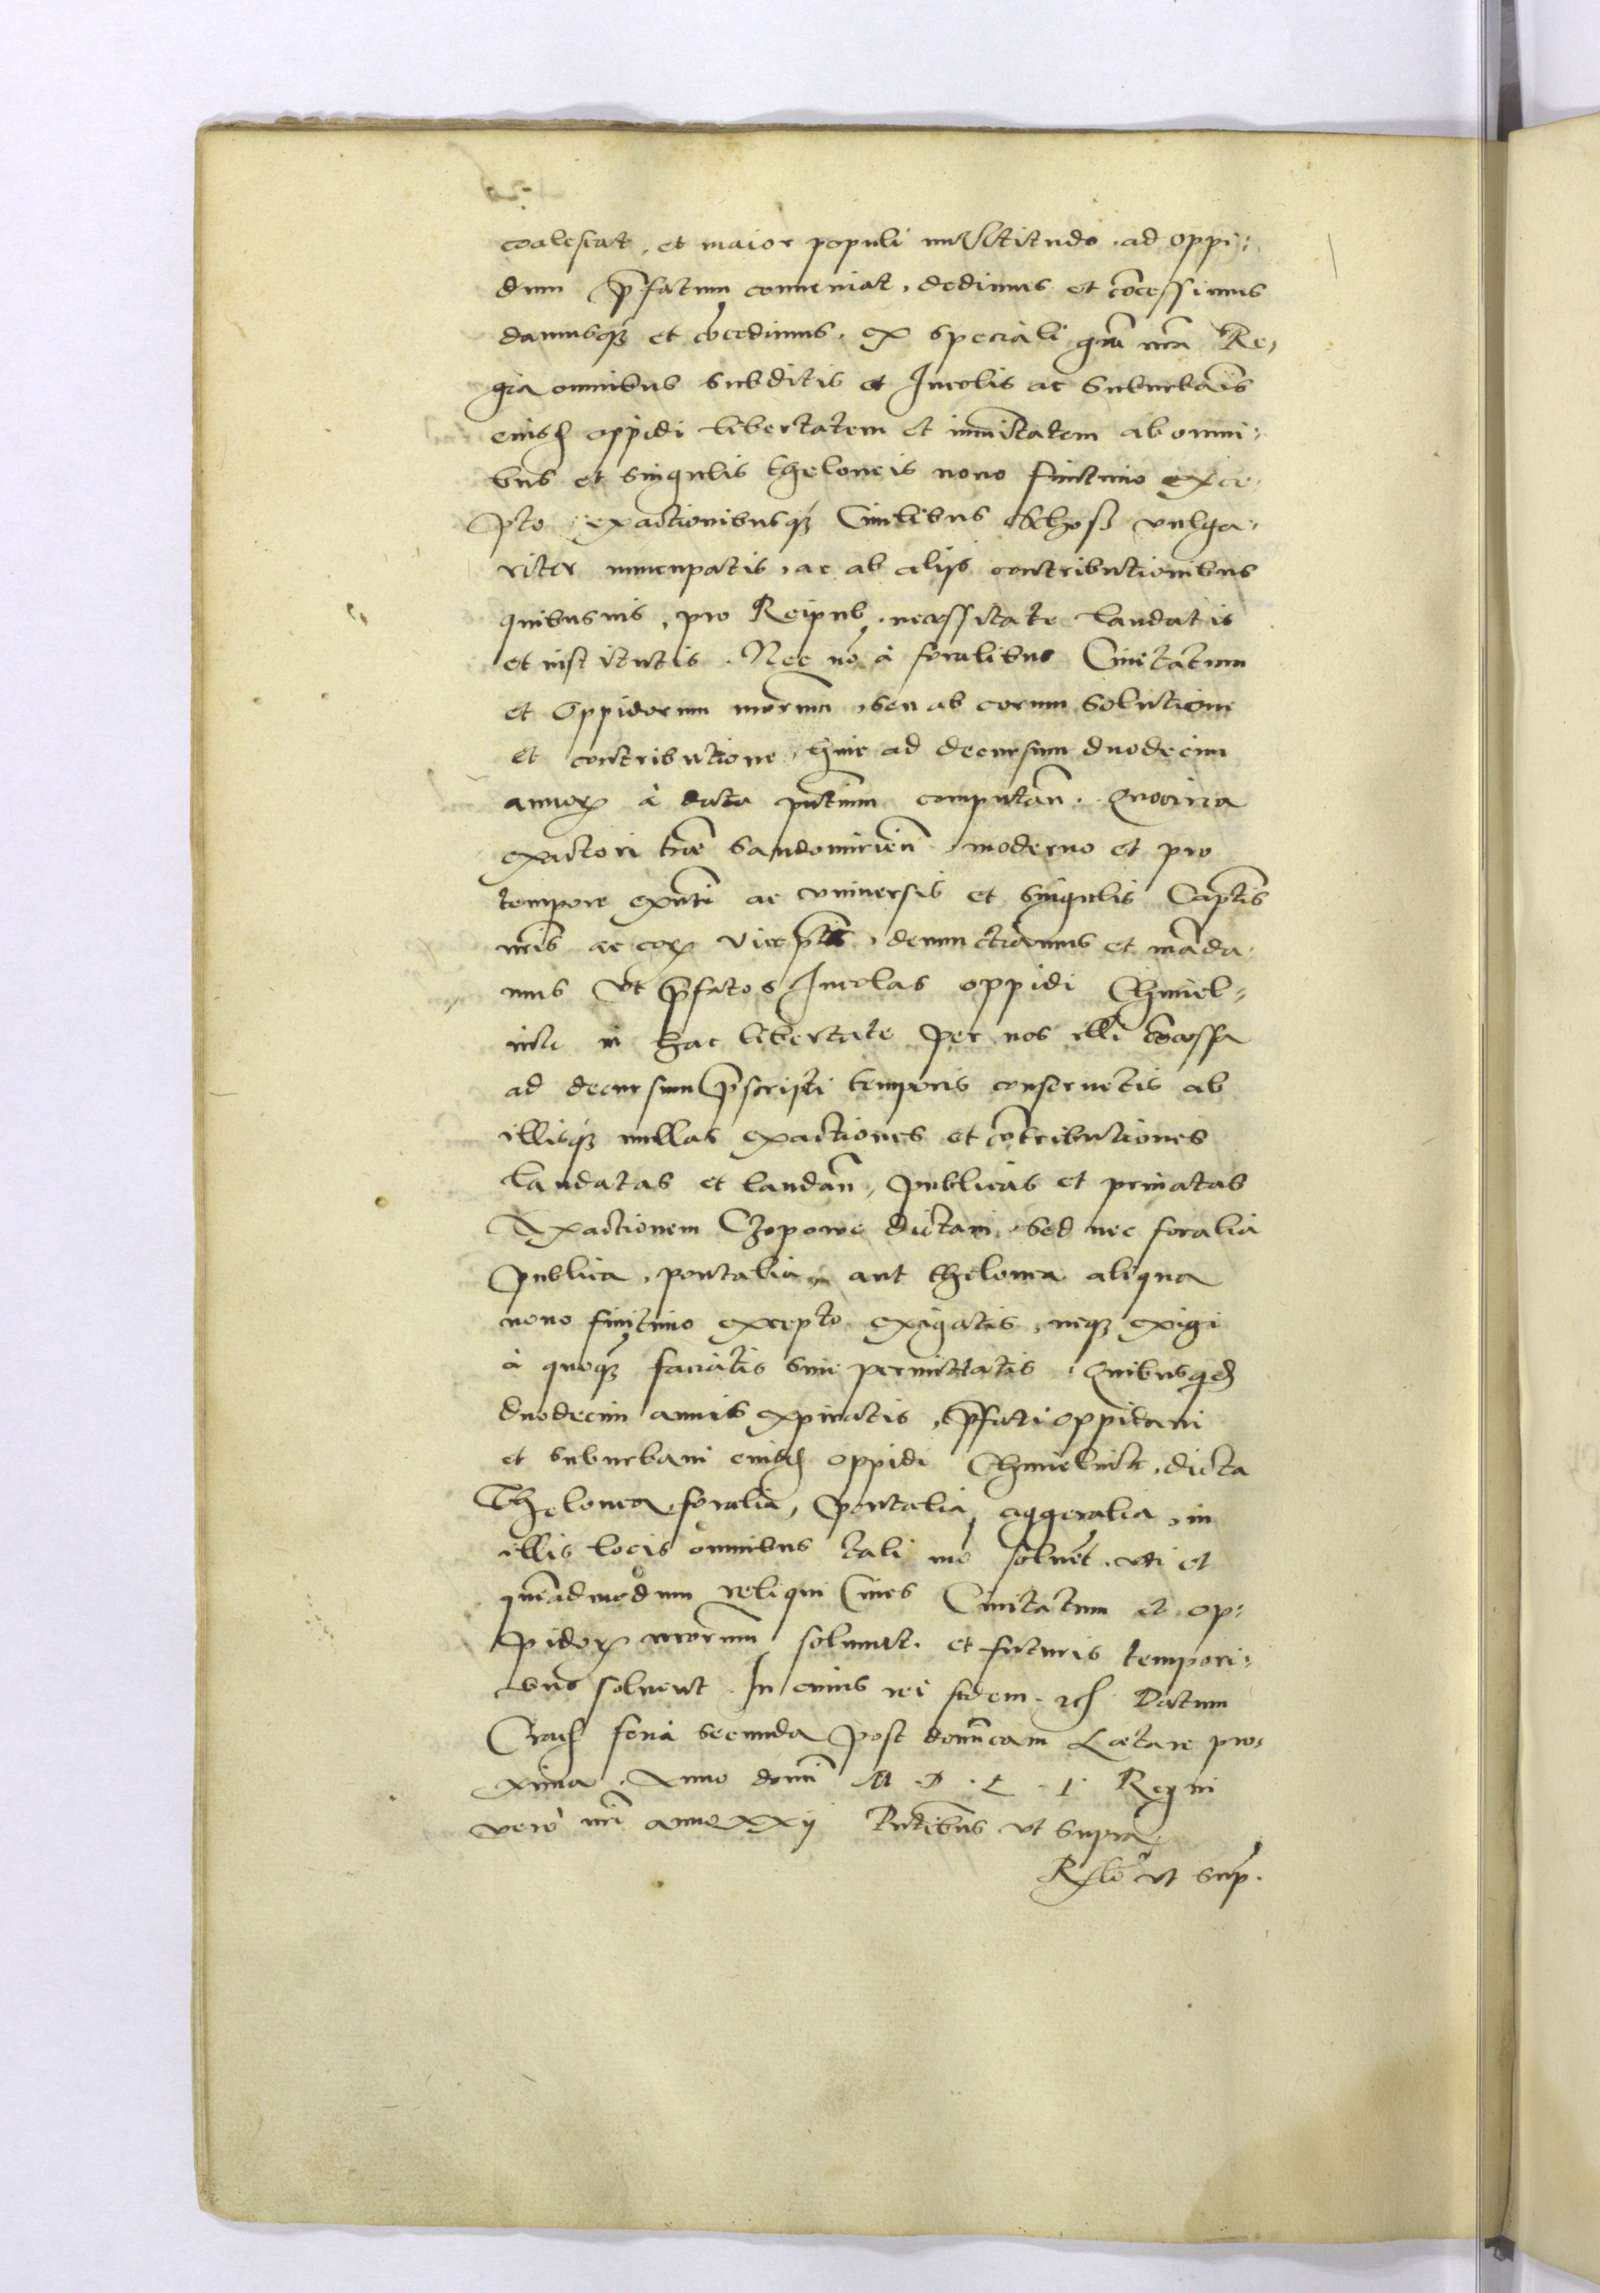 coalescat, et maior populi multitudo ad oppi:
dum p̄fatum conueniat, dedimus et cōcessimus
damusq; et cōcedimus ex speciali grā nrā Re,
gia omnibus subditis et Incolis ac Suburbāis
eiusd oppidi libertatem et immūitatem ab omni:
bus et singulis theloneis nouo finitimo exce,
pto exactionibusq; Ciuilibus Schosz vulga,
riter nuncupatis, ac ab alijs contributionibus
quibusuis, pro Reipub, necessitate laudatis
et institutis. Nec nō à foralibus Ciuitatum
et Oppidorum nrorum, seu ab eorum solutione
et contributione, hinc ad decursum duodecim
annorꝝ à data pntium computan̄. Quocirca
exactori trae Sandomirien̄ moderno et pro
tempore exnti ac vniuersis et singulis Captis
nris ac eorꝝ vicecaptis, denunctiamus et māda
mus Vt p̄fatos Incolas oppidi Chmiel-
nik in hac libertate per nos illi cōcessa
ad decursum p̄scripti temporis conseruetis ab
illisq; nullas exactiones et cōtributiones
laudatas et laudan̄, publicas et priuatas
Exactionem Czopowe dictam, sed nec foralia
publica, pontalia, aut thelonea aliqua
nouo finitimo excepto exigatis, neq; exigi
à quoq; faciatis siue permittatis. Quibus qd
duodecim annis expiratis, p̄fati oppidani
et suburbani eiusd oppidi Chmielnik, dicta
Thelonea, foralia, pontalia, aggeralia, in
illis locis omnibus tali mō soluēt, vti et
quēadmodum reliqui Ciues Ciuitatum et op:
pidorꝝ nrorum soluunt, et futuris tempori:
bus soluent. In cuius rei fidem. Datum
Crac feria secunda post domīcam Laetare pro,
xima. Anno domī M. D. L. I. Regni
vero nri anno xxij Pntibus vt supra
Rłtio vt sup.